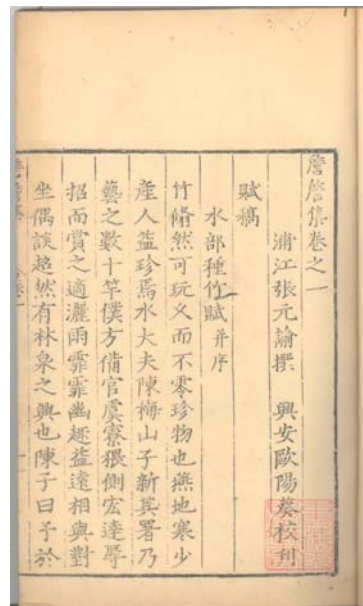 詹詹集卷之一
浦江張元諭撰 興安歐陽葵校刊
賦稿
水部種竹賦 并序
竹翛然可玩又而不零珍物也燕地寒少
產人益珍焉水大夫陳梅山子新其署乃
藝之數十竿僕方備官虞寮猥側宏達辱
招而賞之適灑雨霏霏幽趣益遠相與對
坐偶談超然有林泉之興也陳子曰予於